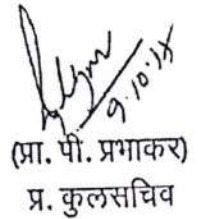 9.10.14
(प्रा. पी. प्रभाकर)
प्र. कुलसचिव